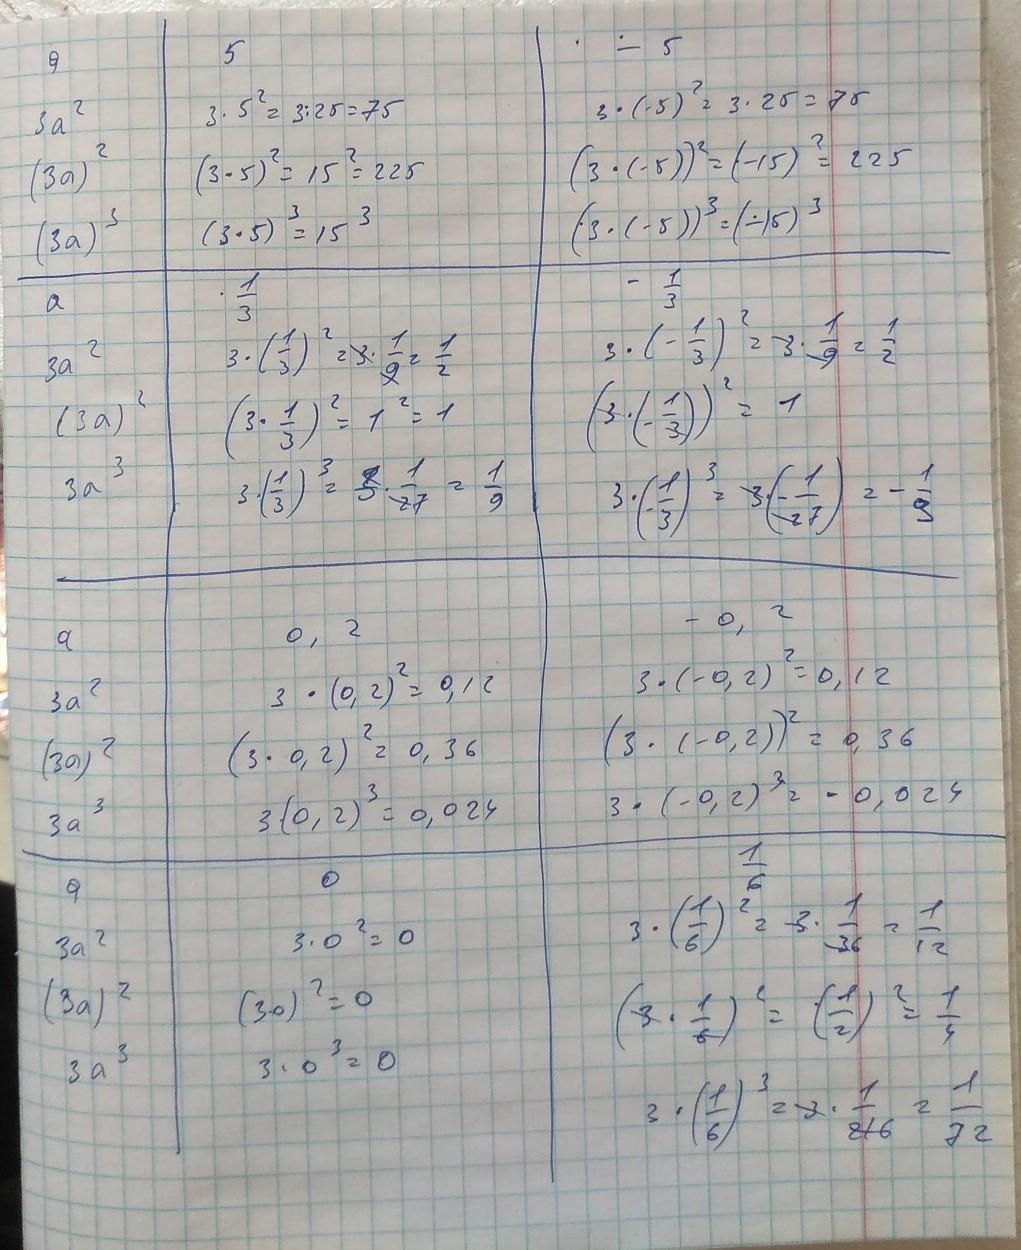 a 5 - 5
3a² 3·5² = 3·25 = 75 3·(-5)² = 3·25 = 75
(3a)² (3·5)² = 15² = 225 (3·(-5))² = (-15)² = 225
(3a)³ (3·5)³ = 15³ (3·(-5))³ = (-15)³
a 1/3 - 1/3
3a² 3·(1/3)² = 3·1/9 = 1/2 3·(-1/3)² = 3·1/9 = 1/2
(3a)² (3·1/3)² = 1² = 1 (3·(-1/3))² = 1
3a³ 3·(1/3)³ = 3·1/27 = 1/9 3·(-1/3)³ = 3·(-1/27) = -1/9
a 0,2 -0,2
3a² 3·(0,2)² = 0,12 3·(-0,2)² = 0,12
(3a)² (3·0,2)² = 0,36 (3·(-0,2))² = 0,36
3a³ 3(0,2)³ = 0,024 3·(-0,2)³ = -0,024
a 0 1/6
3a² 3·0² = 0 3·(1/6)² = 3·1/36 = 1/12
(3a)² (3·0)² = 0 (3·1/6)² = (1/2)² = 1/4
3a³ 3·0³ = 0 3·(1/6)³ = 3·1/216 = 1/72